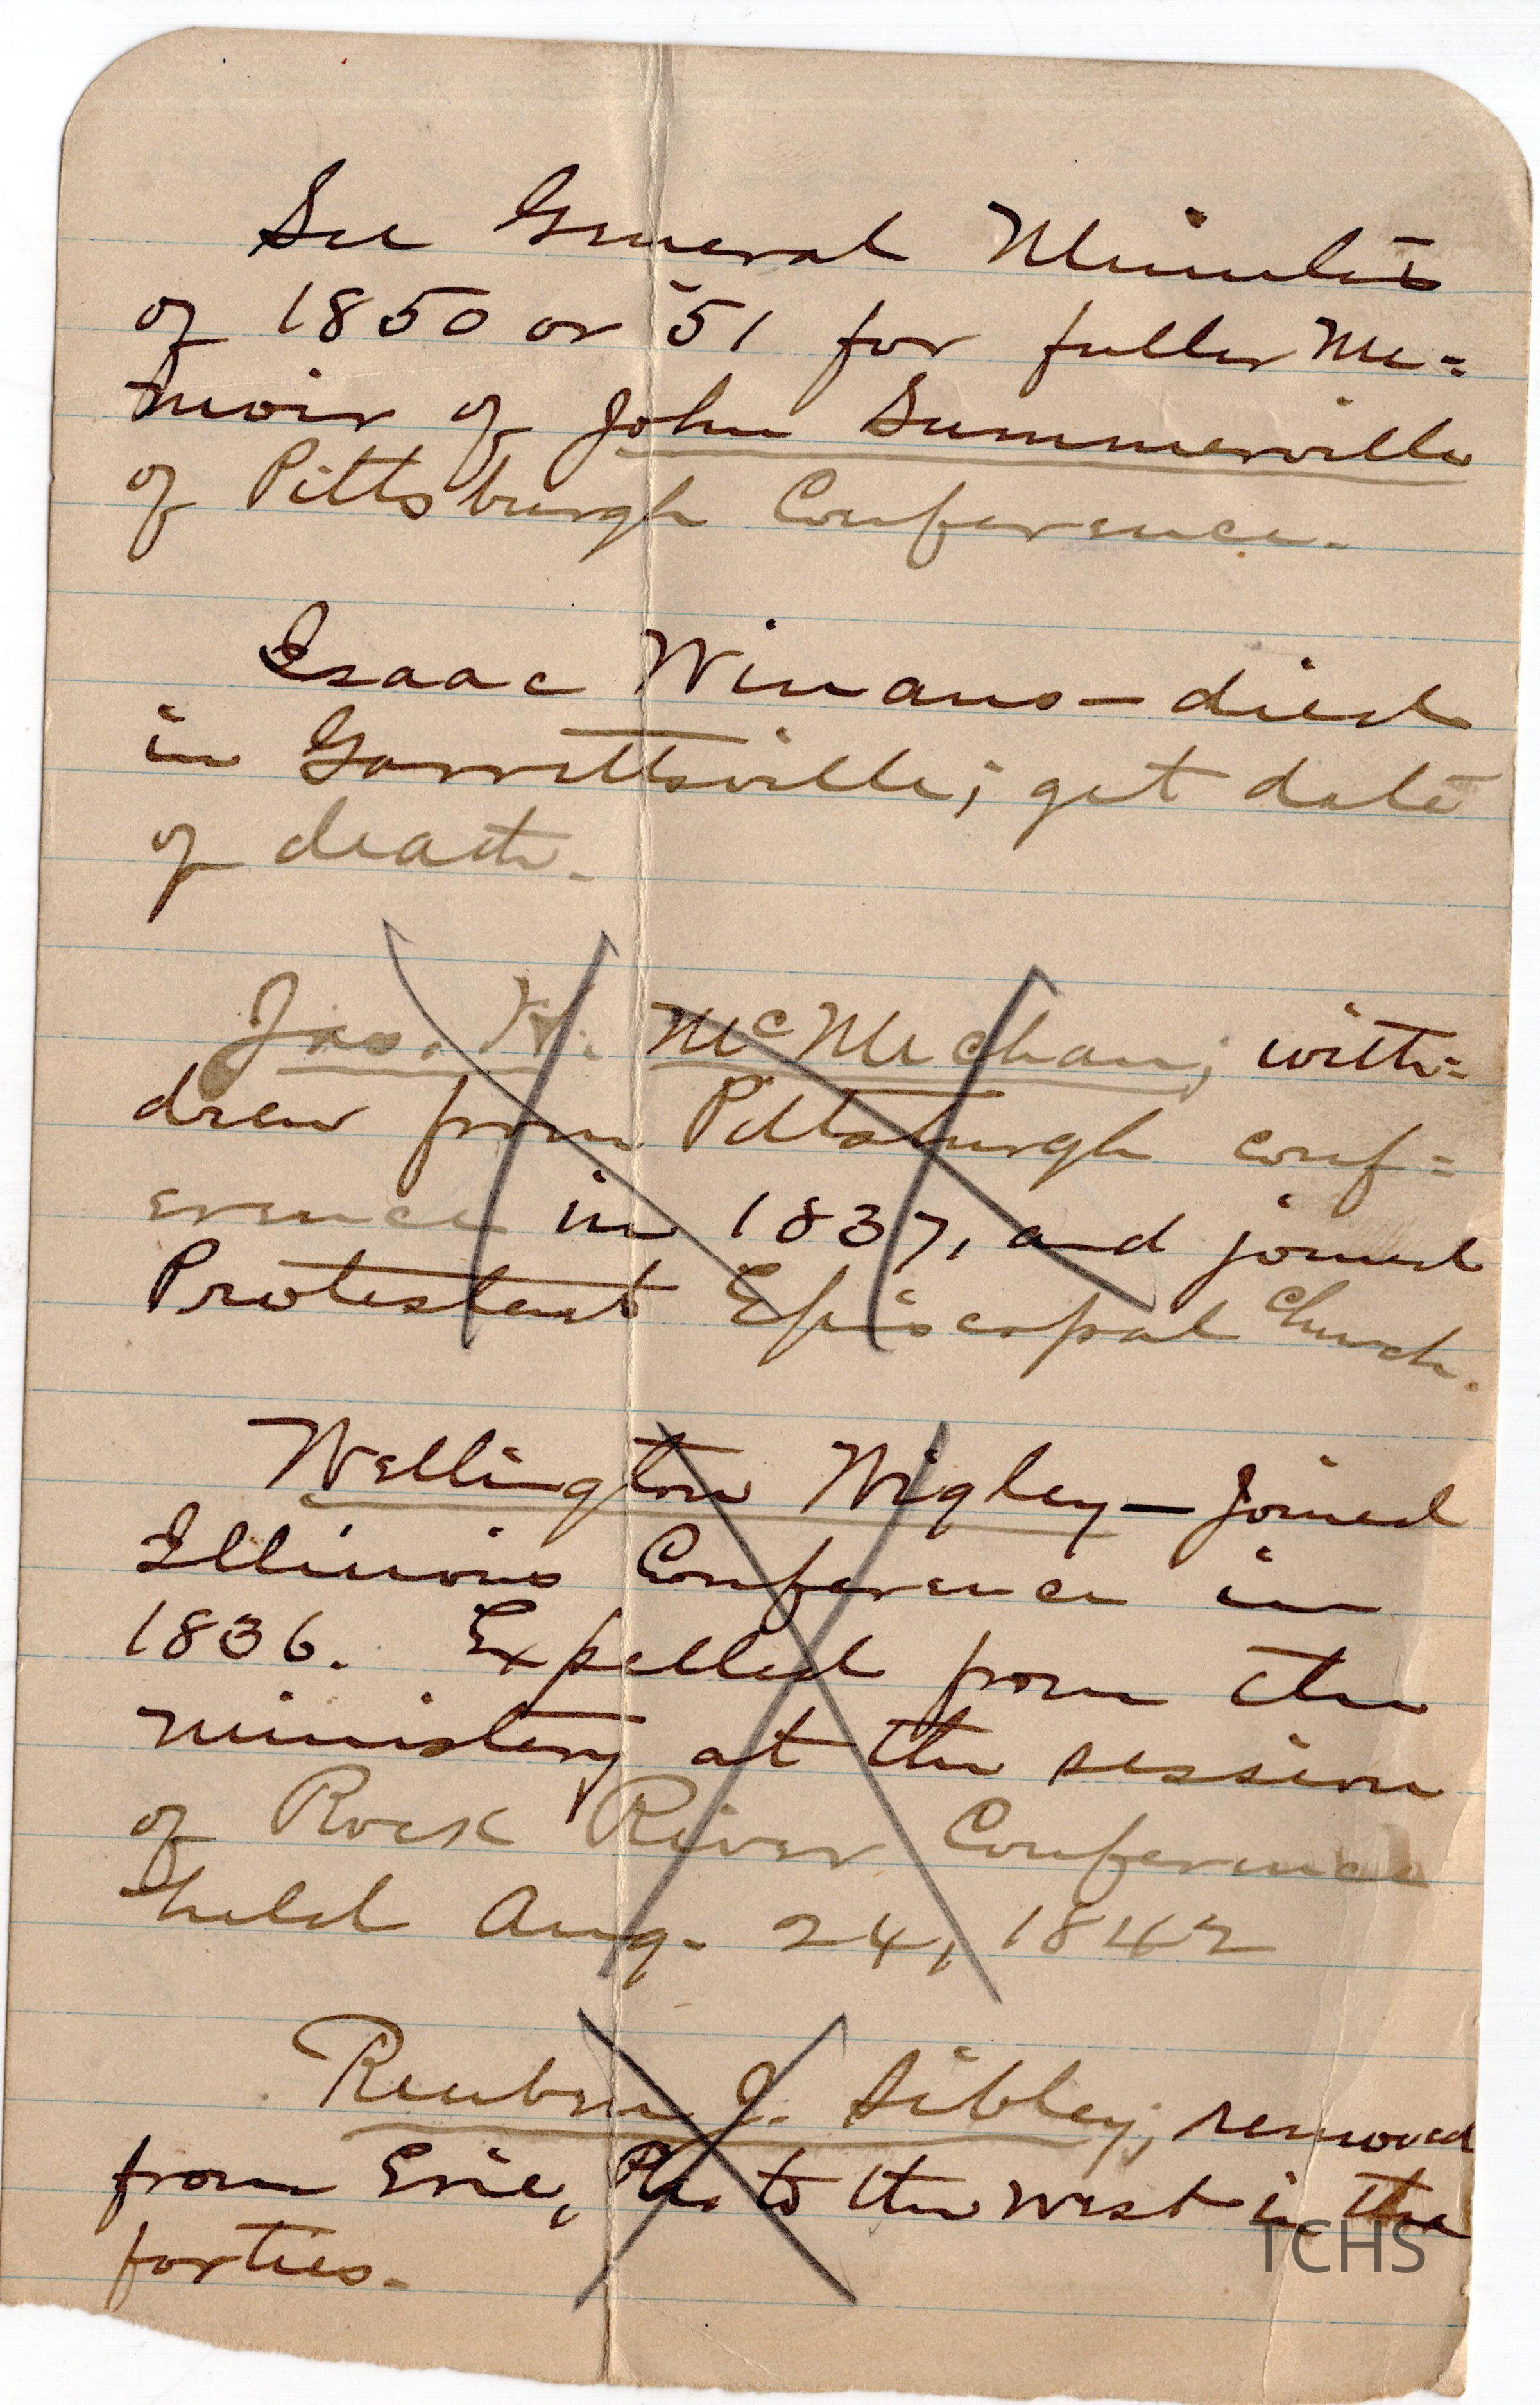 See General Minutes
of 1850 or '51 for fuller Me=
moir of John Summerville
of Pittsburgh Conference.
Isaac Winans — died
in Garrettsville; get date
of death.
Jas. H. McMechan; with=
drew from Pittsburgh conf=
erence in 1837, and joined
Protestant Episcopal Church.
Wellington Wigley — joined
Illinois Conference in
1836. Expelled from the
ministery at the session
of Rock River Conference
held Aug. 24, 1842
Reuben J. Sibley; removed
from Erie, Pa. to the west in the
forties.
TCHS